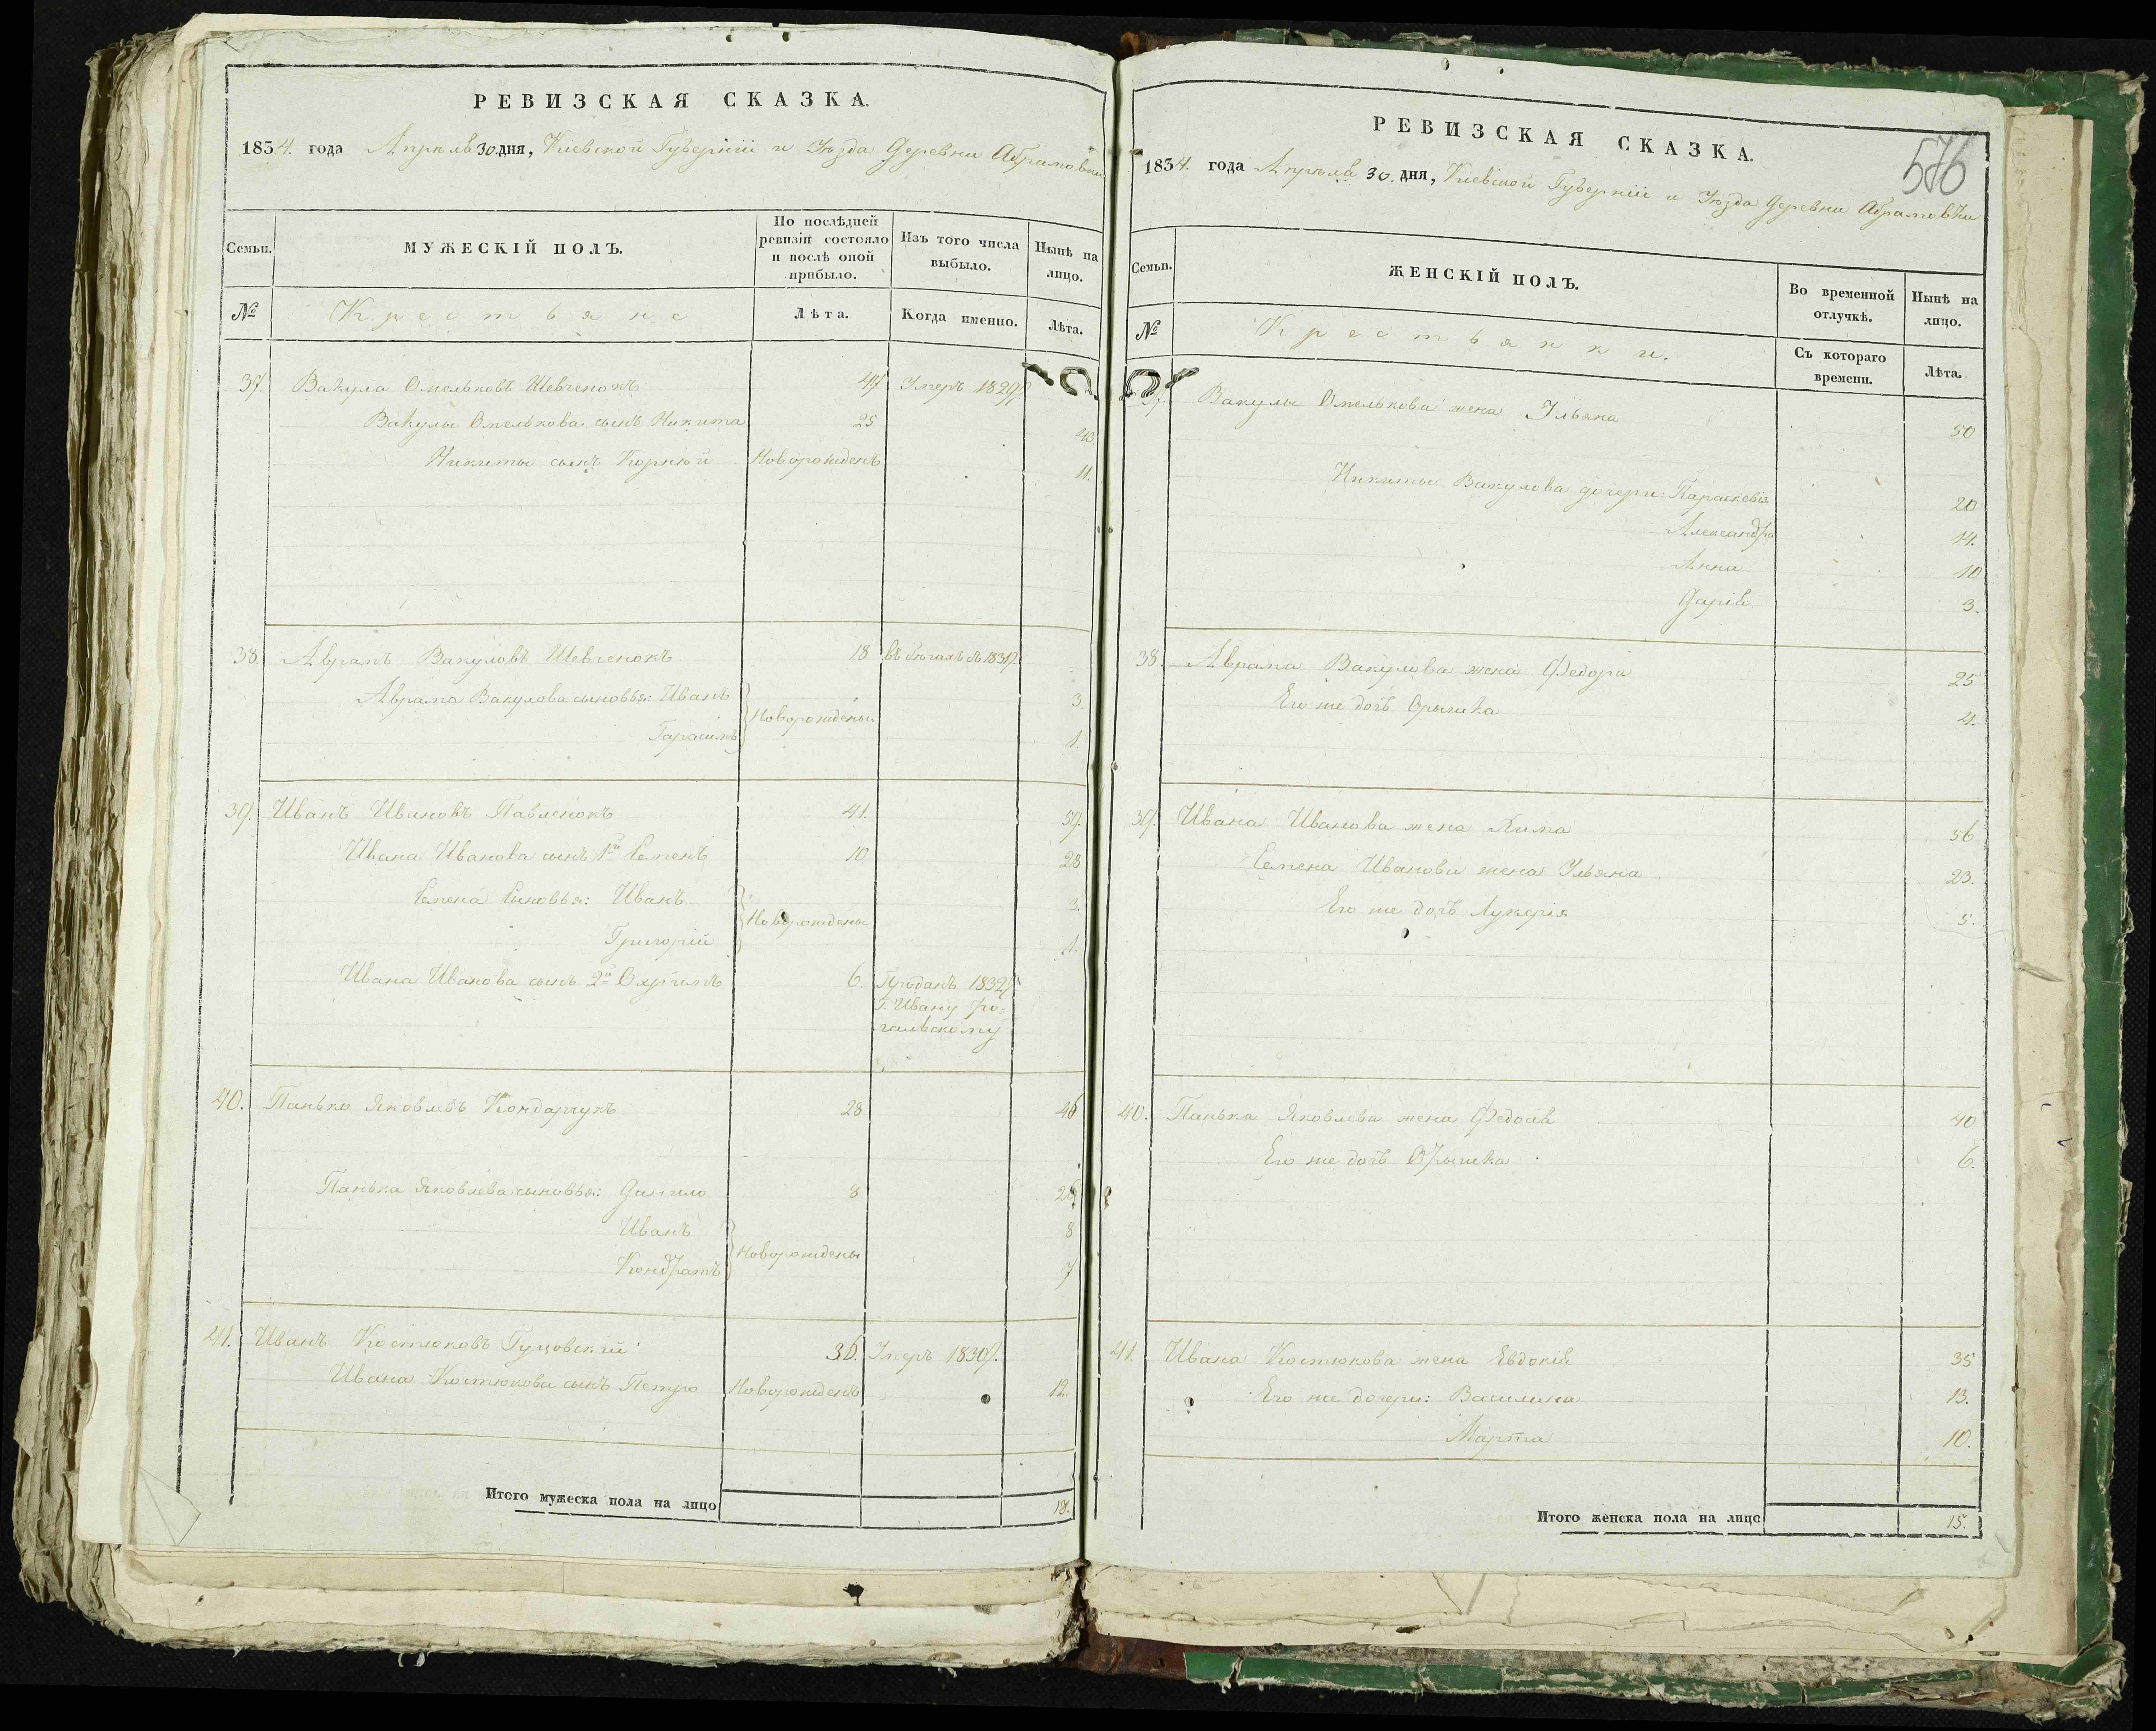 РЕВИЗСКАЯ СКАЗКА.
1834. года Апрѣля 30. дня, Кіевской Губерніи и Уѣзда Деревни Абрамовки
Семьи. МУЖЕСКІЙ ПОЛЪ. По послѣдней ревизіи состояло и послѣ оной прибыло. Изъ того числа выбыло. Нынѣ на лицо.
№ Крестьяне Лѣта. Когда именно. Лѣта.
37. Вакула Омельковъ Шевченокъ 47 Умеръ 1829
Вакулы Омелькова сынъ Никита 25 43.
Никиты сынъ Корнѣй Новорожденъ 11.
38. Аврамъ Вакуловъ Шевченокъ 18 въ бѣгахъ съ 1831
Аврама Вакулова сыновья: Иванъ Новорождены 3.
Гарасимъ 1.
39. Иванъ Ивановъ Павленокъ 41. 59.
Ивана Иванова сынъ 1й Семенъ 10 28
Семена Сыновья: Иванъ Новорождены 3.
Григорій 1.
Ивана Иванова сынъ 2й Охримъ 6. 1832
г. Ивану Ро=
гальскому
40. Панько Яковлевъ Кондарчукъ 28 46
Панька Яковлева сыновья: Данило 8 26
Иванъ Новорождены 8
Кондратъ 7
41. Иванъ Костюковъ Гуцовский 36. Умеръ 1830.
Ивана Костюкова сынъ Петро Новорожденъ 12.
Итого мужеска пола на лицо 18.
РЕВИЗСКАЯ СКАЗКА.
576
1834. года Апрѣля 30. дня, Кіевской Губерніи и Уѣзда Деревни Абрамовки
Семьи. ЖЕНСКІЙ ПОЛЪ. Во временной отлучкѣ. Нынѣ на лицо.
№ Крестьянки. Съ котораго времени. Лѣта.
37. Вакулы Омелькова жена Ульяна 50
Никиты Вакулова дочери: Параскевія 20
Александра 14.
Анна 10
Дарія 3.
38. Аврама Вакулова жена Федора 25
Его же дочь Орышка 4.
39. Ивана Иванова жена Якима 56
Семена Иванова жена Ульяна 23.
Его же дочь Лукерія 5.
40. Панька Яковлева жена Федосія 40
Его же дочь Орышка 6.
41. Ивана Костюкова жена Евдокія 35
Его же дочери: Василина 13.
Марта 10.
Итого женска пола на лицо 15.